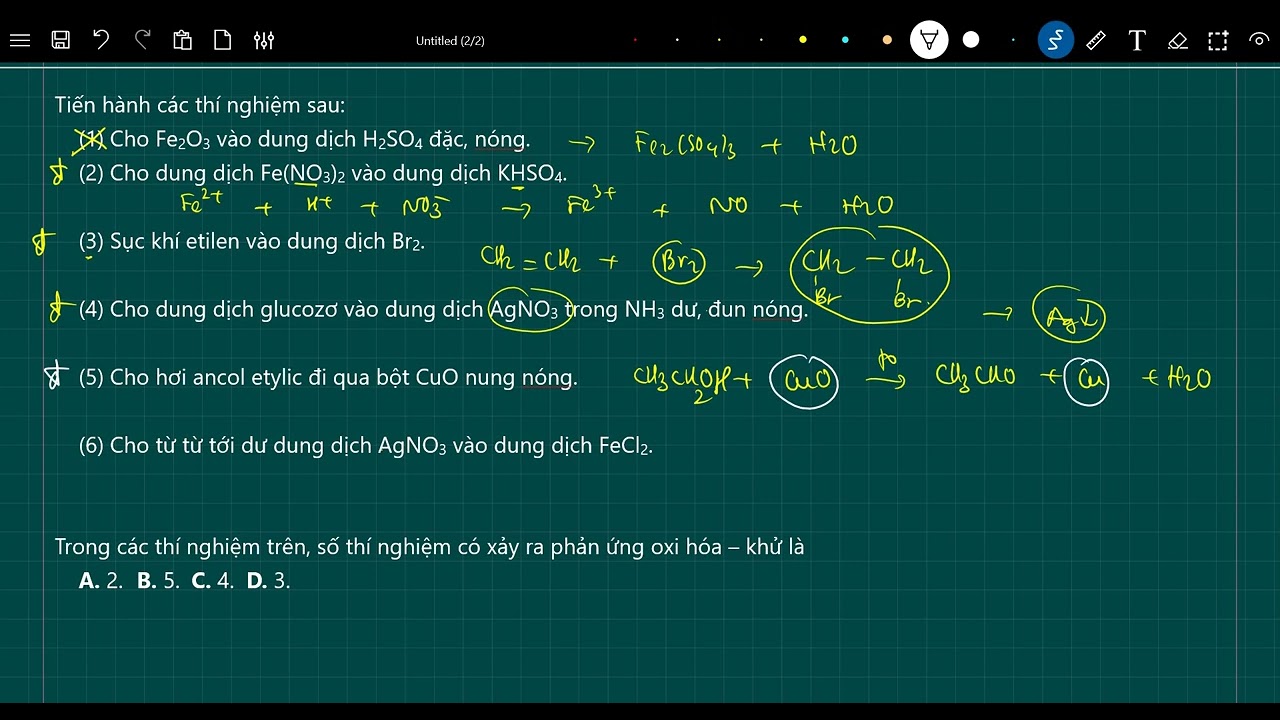 Untitled (2/2)
T
Tiến hành các thí nghiệm sau:
(1) Cho Fe₂O₃ vào dung dịch H₂SO₄ đặc, nóng. → Fe₂(SO₄)₃ + H₂O
(2) Cho dung dịch Fe(NO₃)₂ vào dung dịch KHSO₄.
Fe²⁺ + H⁺ + NO₃⁻ → Fe³⁺ + NO + H₂O
(3) Sục khí etilen vào dung dịch Br₂.
CH₂ = CH₂ + Br₂ → CH₂ – CH₂
Br Br
(4) Cho dung dịch glucozơ vào dung dịch AgNO₃ trong NH₃ dư, đun nóng. → Ag↓
(5) Cho hơi ancol etylic đi qua bột CuO nung nóng. CH₃CH₂OH + CuO →(t°) CH₃CHO + Cu + H₂O
(6) Cho từ từ tới dư dung dịch AgNO₃ vào dung dịch FeCl₂.
Trong các thí nghiệm trên, số thí nghiệm có xảy ra phản ứng oxi hóa – khử là
A. 2. B. 5. C. 4. D. 3.